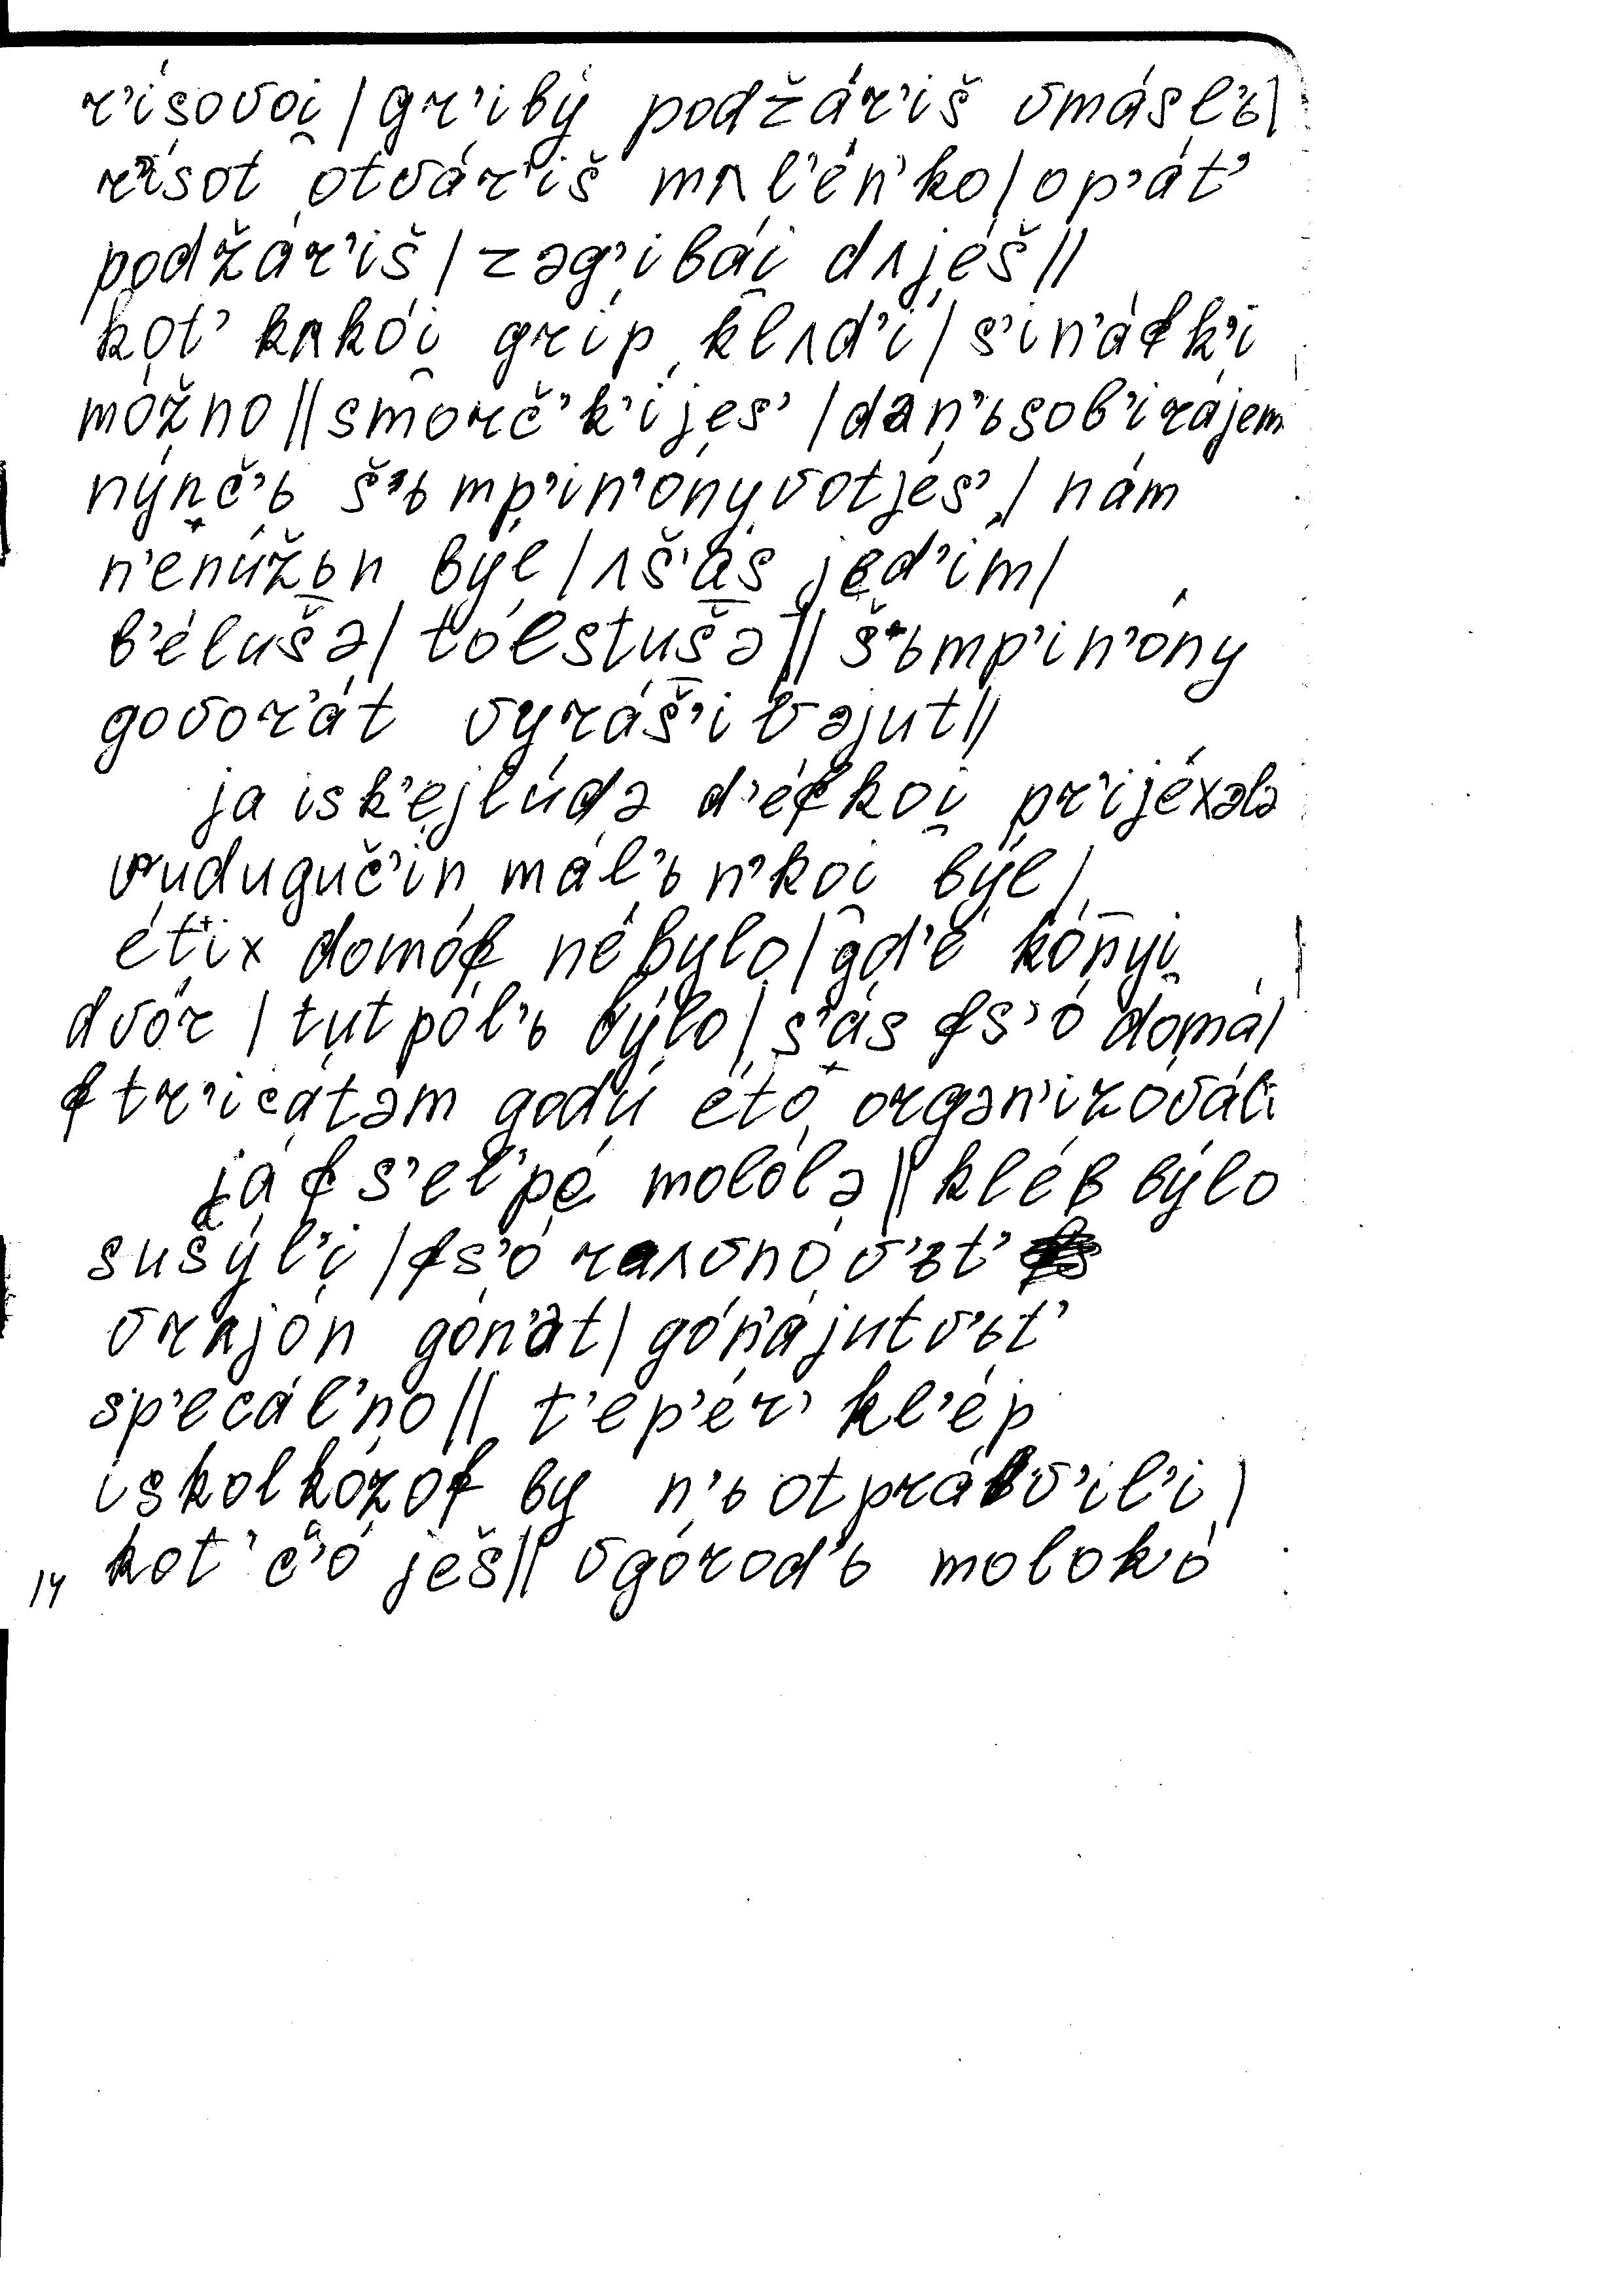 r'ísovoi̯ / gr'ibý podžár'iš vmásl'ъ /
r'ísot otvár'iš mʌl'én'ko / op'át'
podžár'iš / zəg'ibái̯ dʌjéš //
kot' kʌkói̯ gríp klʌd'í / s'in'áɸk'i
móžno // smorč'k'i jes' / dan'ъsob'irájem
nýnč'ъ š'ъmp'in'óny votjés' / nám
n'enúžъn být / ʌš'ás jed'ím /
b'élušə / tólstušə // š'ъmp'in'óny
govor'át vyráš'ivəjut //
ja isk'ejlúdə d'éɸkoi̯ pr'ijéxələ
vudugуč'in mál'ъn'koi̯ býl /
ét'ix domóɸ nébylo / gd'é kónyi̯
dvór / tut pól'ъ býlo / s'ás ɸs'ó domá /
ɸtr'icátəm godú éto orgən'izováli
já ɸs'el'pé molólə // kléb býlo
sušýl'i / ɸs'ó rʌvnó v'ъt'
vrʌjón gón'at / gón'ájutv'ъt'
sp'ecál'no // t'ep'ér' kl'ép
iskolkózoɸ by n'ъotpráv'il'i /
kot' č'ó ješ // vgórod'ъ molokó
14